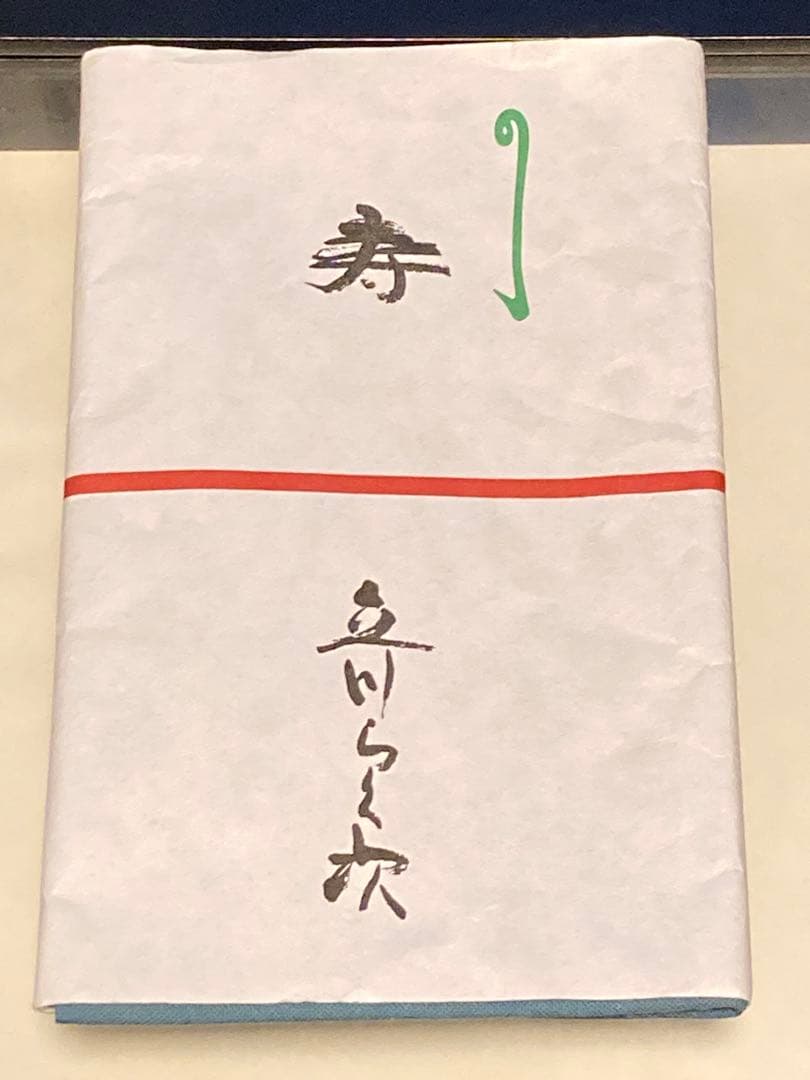 寿
立川らく次